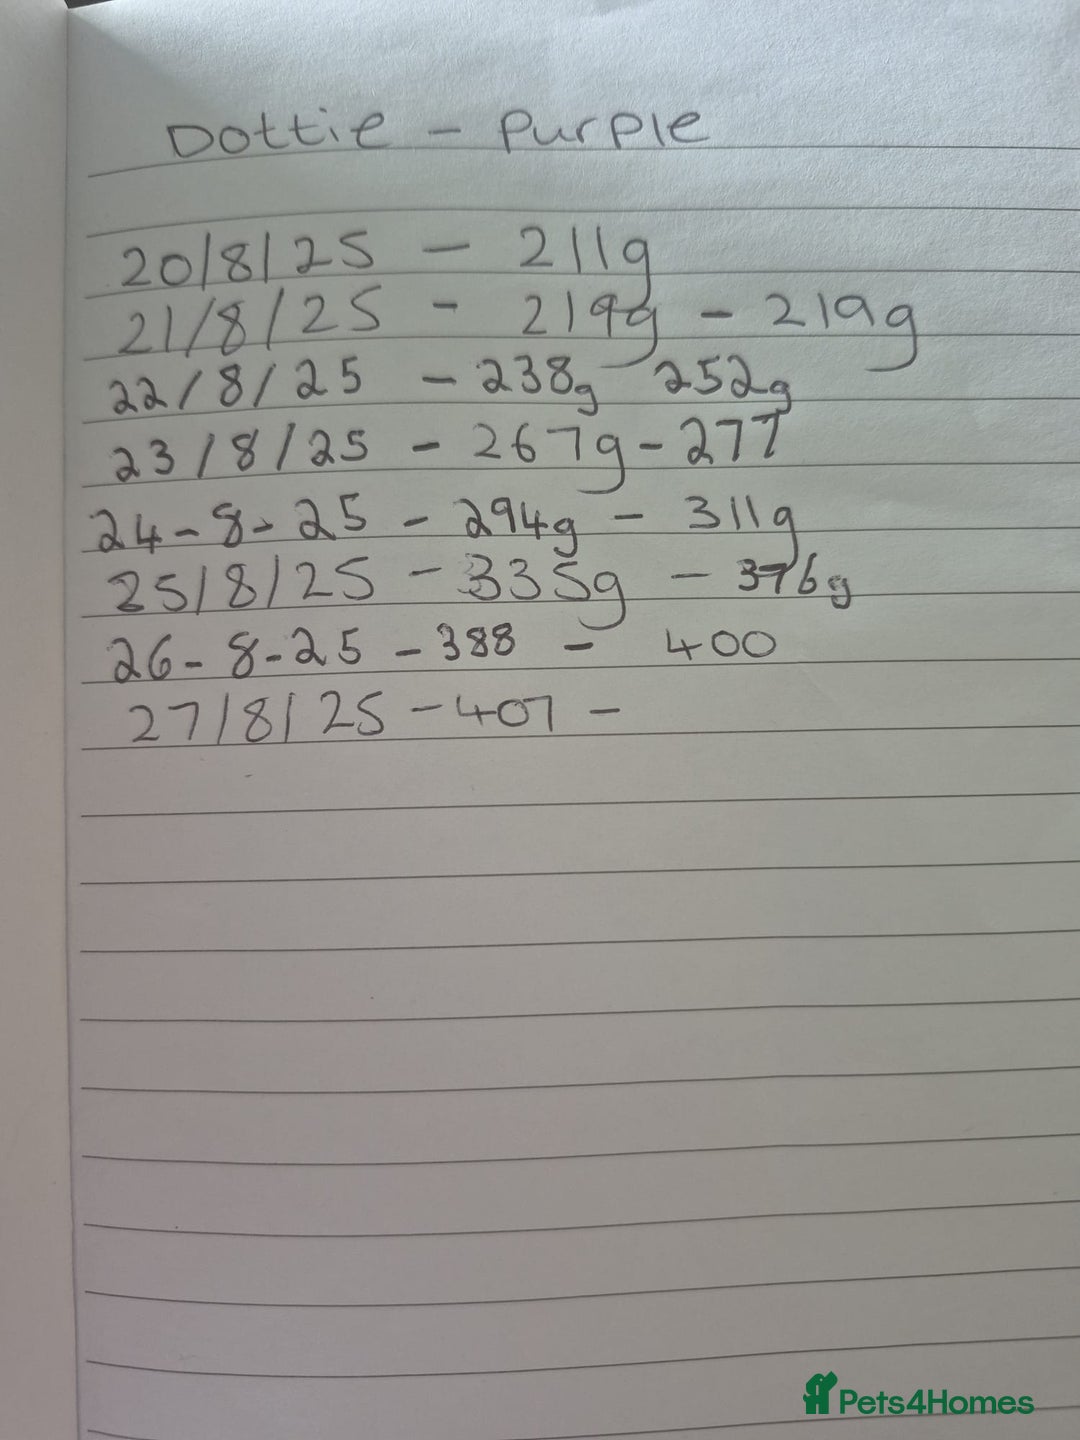 Dottie - Purple
20/8/25 - 211g
21/8/25 - 219g - 219g
22/8/25 - 238g 252g
23/8/25 - 267g - 277
24-8-25 - 294g - 311g
25/8/25 - 335g - 376g
26-8-25 - 388 - 400
27/8/25 - 407 -
Pets4Homes